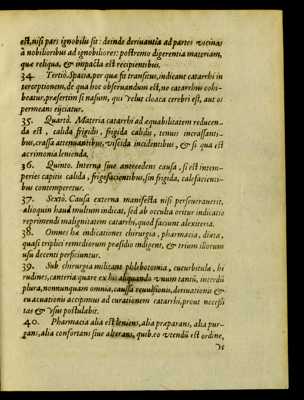 est, nisi pars ignobilis sit: deinde deriuantia ad partes vicinas
à nobilioribus ad ignobiliores: postremo digerentia materiam,
quæ reliqua, & impacta est recipientibus.
34. Tertiò. Spatia, per quæ fit transitus, indicant catarrhi in
terceptionem, de qua hoc obseruandum est, ne catarrhum cohi-
beatur, præsertim si nasum, qui velut cloaca cerebri est, aut os
permeans eijciatur.
35. Quartò. Materia catarrhi ad equabilitatem reducen-
da est, calida frigidis, frigida calidis, tenuis incrassanti-
bus, crassa attenuantibus, viscida incidentibus, & si qua est
acrimonia lenienda,
36. Quinto. Interna siue antecedens causa, si est intem-
peries capitis calida, frigefacientibus, sin frigida, calefacienti-
bus contemperetur.
37. Sextò. Causa externa manifesta nisi perseuerauerit,
alioquin haud multum indicat, sed ab occulta oritur indicatio
reprimendi malignitatem catarrhi, quod faciunt alexiteria.
38. Omnes hæ indicationes chirurgia, pharmacia, diæta,
quasi triplici remediorum præsidio indigent, & trium illorum
usu decenti perficiuntur.
39. Sub chirurgia militant phlebotomia, cucurbitula, hi
rudines, cauteria quare ex his aliquando vnum tantũ, interdũ
plura, nonnunquam omnia, causa euulsionis, deriuationis &
euacuationis accipimus ad curationem catarrhi, prout necessi
tas & vsus postulabit.
40. Pharmacia alia est leniens, alia præparans, alia pur-
gans, alia confortans siue alterans, quib. eo vtendũ est ordine,
vt